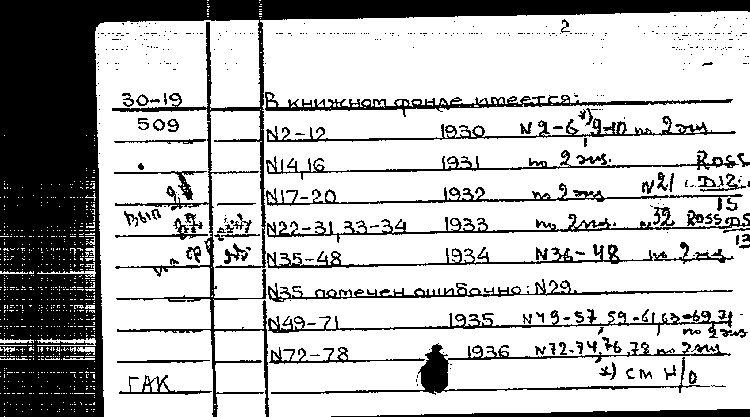 2
30-19 В книжном фонде имеется:
509 N2-12 1930 N 2-6, 9-10 по 2 экз
N14,16 1931 по 2 экз. ROSS
N17-20 1932 по 2 экз N21
15
N22-31, 33-34 1933 по 2 экз. N32 ROSS DS
13
N35-48 1934 N36-48 по 2 экз
N35 помечен ошибочно: N29.
N49-71 1935 N49-57, 59-61, 63-69, 71
по 2 экз
N72-78 1936 N72-74, 76, 78 по 2 экз
ГАК *) см н/о